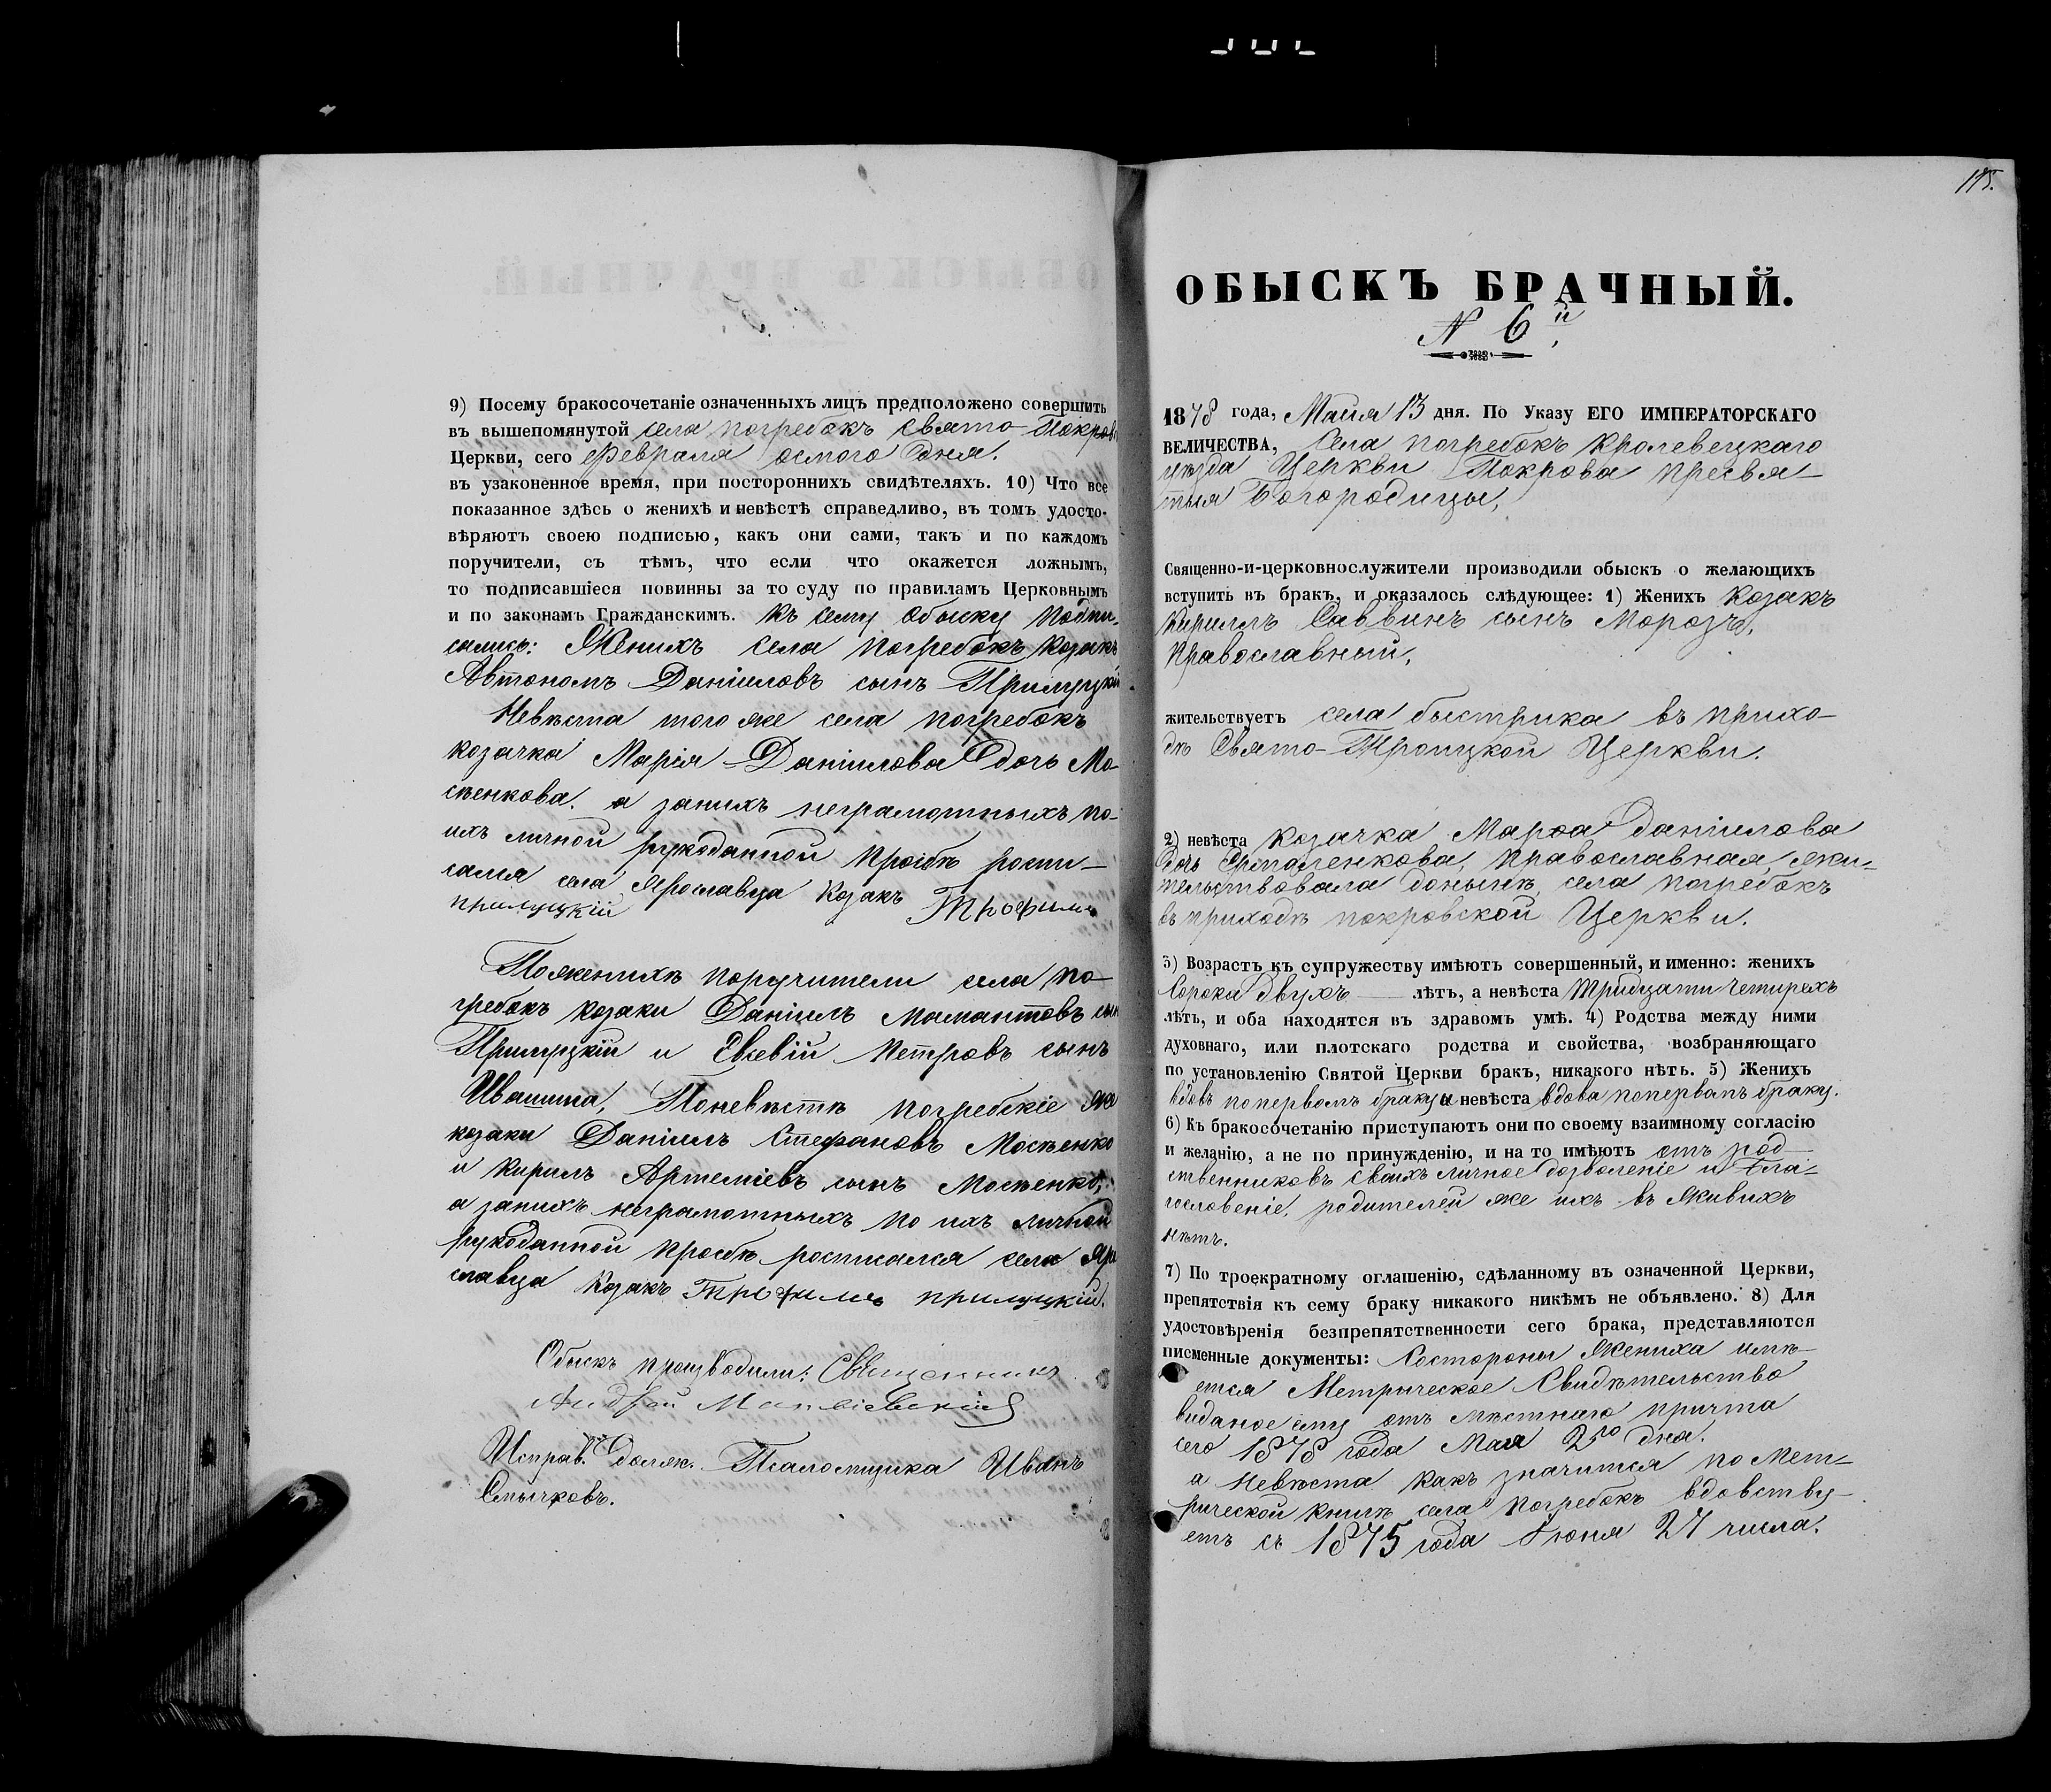 9) Посему бракосочетаніе означенныхъ лицъ предположено совершить
въ вышепомянутой села Погребокъ Свято-Покров
Церкви, сего Февраля осмого дня.
въ узаконенное время, при постороннихъ свидѣтеляхъ. 10) Что все
показанное здѣсь о женихѣ и невѣстѣ справедливо, въ томъ удосто-
вѣряютъ своею подписью, какъ они сами, такъ и по каждомъ
поручители, съ тѣмъ, что если что окажется ложнымъ,
то подписавшіеся повинны за то суду по правиламъ Церковнымъ
и по законамъ Гражданскимъ. Къ сему обыску подпи-
сались: Женихъ села Погребокъ козакъ
Автономъ Даніиловъ сынъ Прилуцкій
Невѣста того же села Погребокъ
козачка Марія Даніилова дочь Мо-
сѣенкова. а занихъ неграмотныхъ по-
ихъ личной рукоданной прозбѣ роспи-
сался села Ярославца козакъ Трофимъ
прилуцкій
Поженихѣ поручители села По-
гребокъ козаки Даніилъ Мамантовъ сын
Прилуцкій и Евсевій Петровъ сынъ
Ивашина, Поневѣстѣ погребскіе же
козаки Даніилъ Стефановъ Мосѣенко
и Кирилъ Артеміевъ сынъ Мосѣенко,
а занихъ неграмотныхъ по ихъ личной
рукоданной прозбѣ росписался села Яро
славца козакъ Трофимъ прилуцкій.
Обыскъ производили: Священникъ
Андрей
Исправ. долж. Псаломщика Иванъ
Смычковъ.
115.
ОБЫСКЪ БРАЧНЫЙ.
N 6й
1878 года, Маія 13 дня. По Указу ЕГО ИМПЕРАТОРСКАГО
ВЕЛИЧЕСТВА, Села Погребокъ Кролевецкаго
уѣзда Церкви Покрова Пресвя-
тыя Богородицы,
Священно-и-церковнослужители производили обыскъ о желающихъ
вступить въ бракъ, и оказалось слѣдующее: 1) Женихъ Козакъ
Кириллъ Саввинъ сынъ Морозъ,
Православный,
жительствуетъ села быстрика въ прихо-
дѣ Свято-Троицкой Церкви.
2) невѣста козачка Марѳа Даніилова
дочь Ермоленкова, православная, жи-
тельствовала донынѣ села Погребокъ
въ приходѣ покровской Церкви.
3) Возрастъ къ супружеству имѣютъ совершенный, и именно: женихъ
Сорока двухъ — лѣтъ, а невѣста Тридцати четирехъ
лѣтъ, и оба находятся въ здравомъ умѣ. 4) Родства между ними
духовнаго, или плотскаго родства и свойства, возбраняющаго
по установленію Святой Церкви бракъ, никакого нѣтъ. 5) Женихъ
вдовъ попервомъ браку и невѣста вдова попервомъ браку.
6) Къ бракосочетанію приступаютъ они по своему взаимному согласію
и желанію, а не по принужденію, и на то имѣютъ отъ род
ственниковъ своихъ личное дозволеніе и бла-
гословеніе, родителей же ихъ въ живихъ
нѣтъ.
7) По троекратному оглашенію, сдѣланному въ означенной Церкви,
препятствія къ сему браку никакого никѣмъ не объявлено. 8) Для
удостовѣренія безпрепятственности сего брака, представляются
писменные документы: Состороны Жениха имѣ-
ется Метрическое Свидѣтельство
виданое ему отъ мѣстнаго причта
сего 1878 года Мая 2го дня.
а Невѣста какъ значится по Мет-
рической книгѣ села Погребокъ вдовству-
етъ съ 1875 года Іюня 27 числа.